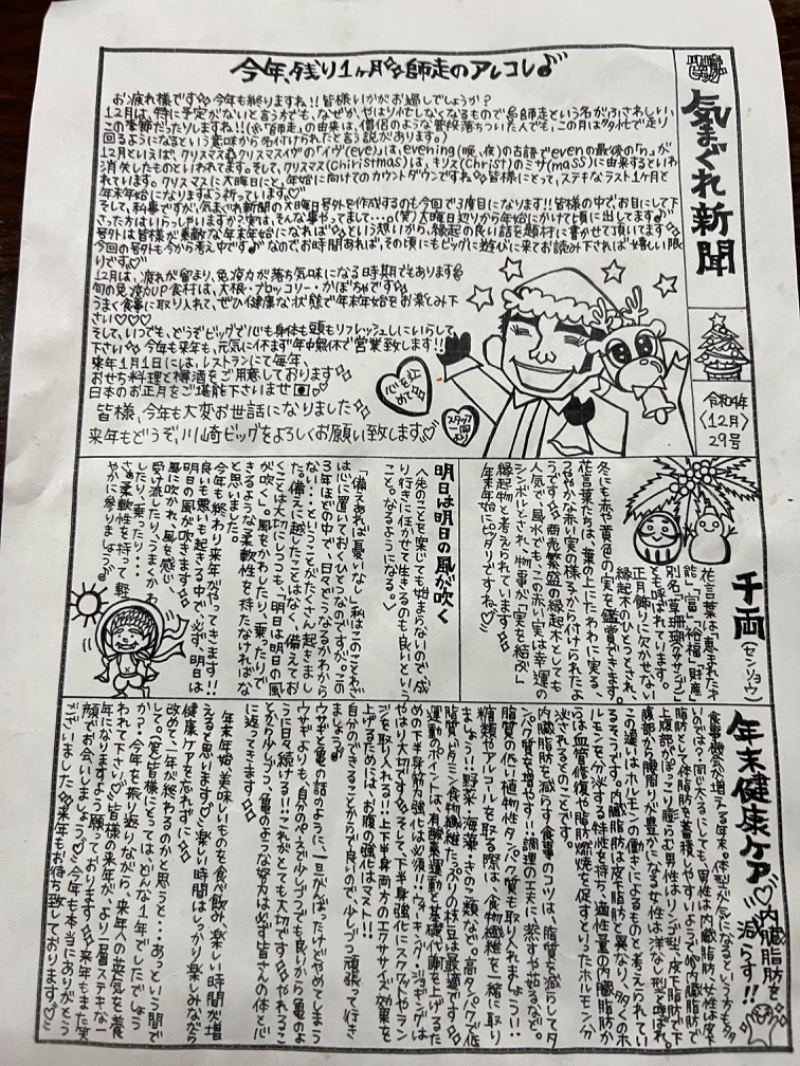 川崎ビッグ
気まぐれ新聞
令和4年
〈12月〉
29号
今年、残り1ヶ月 師走のアレコレ♪
お疲れ様です 今年も終りますね!!皆様いかがお過しでしょうか?
12月は、特に予定がないと言う方でも、なぜか、やはり忙しなくなるもので 師走という名がふさわしい、
この季節だったりしますね!!(※「師走」の由来は、僧侶のような普段落ちついた人でも、この月は多忙で走り
回るようになるという意味から名付けられたと言う説があります。)
12月といえば、クリスマス クリスマスイヴの「イヴ(eve)」は、evening(晩、夜)の古語でevenの最後の「n」が
消失したものといわれてます。そして、クリスマス(Chiristmas)は、キリス(Christ)のミサ(mass)に由来するといわ
れています。クリスマスに大晦日にと、年始に向けてのカウントダウンですね 皆様にとって、ステキなラスト1ヶ月と
年末年始になりますよう祈っています♡
そして、私事ですが、気まぐれ新聞の大晦日号外を作成するのも今回で3度目になります!!皆様の中で、お目にして下
さった方はいらっしゃいますか?実は、そんな事やってまして...。(笑)大晦日辺りから年始にかけて頃に出してます♪
号外は皆様が素敵な年末年始になれば という想いから、縁起の良い話を題材に書かせて頂いてます
今回の号外も今から考え中です♪なのでお時間あれば、その頃にもビッグに遊びに来てお読み下されば嬉しい限
りです♡
12月は、疲れが留まり、免疫力が落ち気味になる時期でもあります
旬の免疫力UP食材は、大根・ブロッコリー・かぼちゃです
うまく食事に取り入れて、ぜひ健康な状態で年末年始をお楽しみ下
さい♡♡♡
そして、いつでも、どうぞビッグで心も身体も頭もリフレッシュしにいらして
下さい 今年も来年も、元気に休まず年中無休で営業致します!!
来年1月1日には、レストランにて毎年、
おせち料理と樽酒をご用意しております
日本のお正月をご堪能下さいませ
皆様、今年も大変お世話になりました
来年もどうぞ、川崎ビッグをよろしくお願い致します♡
心を込めて
スタッフ一同より
千両(センリョウ)
花言葉は「恵まれた才
能」「富」「裕福」「財産」
別名「草珊瑚(クササンゴ)」
とも呼ばれています。
正月飾りに欠かせない
縁起木のひとつとされ、
冬にも赤や黄色の実を鑑賞できます。
花言葉たちは、葉の上にたわわに実る、
つややかな赤い実の様子から付けられたよ
うです 商売繁盛の縁起木としても
人気で、風水でも、この赤い実は幸運の
シンボルとされ、物事が「実を結ぶ」
縁起物と考えられています
年末年始にピッタリですね♡
明日は明日の風が吹く
〈先のことを案じても始まらないので、成
り行きに任かせて生きるのも良いという
こと。なるようになる。〉
「備えあれば憂いなし」私はこのことわざ
は心に置いておくひとつなのですが、この
3年ほどの中で、日々どうなるかわから
ない...ということがたくさん起きまし
た。備えに越したことはなく、備えてお
くことは大切にしつつも「明日は明日の風
が吹く」風をかわしたり、乗ったりで
きるような柔軟性を持たなければな
と思いました。
今年も終わり来年がやってきます!!
良いも悪いも起きる中で、必ず、明日は
明日の風が吹きます
風に吹かれ、風を感じ、
受け流したり、うまくかわ
したり、乗ったり...
さぁ柔軟性を持って軽
やかに参りましょう♪
年末健康ケア♡内臓脂肪を減らす!!
食事機会が増える年末。体型が気になるという方も多
いのでは?同じ太るにしても、男性は内臓脂肪、女性は皮下
脂肪として体脂肪を蓄積しやすいようです。内臓脂肪で
上腹部がぽっこり膨らむ男性はリンゴ型、皮下脂肪で下
腹部から腰周りが豊かになる女性は洋なし型と呼ばれ、
この違いはホルモンの働きによるものと考えられてい
るそうです。内臓脂肪は皮下脂肪と異なり、多くのホ
ルモンを分泌する特性を持ち、適性量の内臓脂肪か
らは血管修復や脂肪燃焼を促すといったホルモン分
泌されるとのことです。
内臓脂肪を減らす食事のコツは、脂質を減らしてタ
ンパク質を増やす!!調理の工夫に蒸すや茹るなど。
脂質の低い植物性タンパク質も取り入れましょう!!
糖類やアルコールを取る際は、食物繊維を一緒に取り
ましょう!!野菜・海藻・きのこ類など。高タンパクで低
脂質、ビタミン、食物繊維たっぷりの枝豆は最適です
運動のポイントは、有酸素運動と基礎代謝を上げるた
めの下半身筋力強化は必須!!ウォーキング・ジョギングは
やはり大切です そして、下半身強化にスクワットやラン
ジを取り入れる!!上下半身両方のエクササイズ効果を
上げるためには、お腹の強化はマスト!!
自分のできることからで良いので、少しづつ頑張って行き
ましょう♪
ウサギと亀の話のように、一旦がんばったけどやめてしまう
ウサギよりも、自分のペースで少しづつでも良いから亀のよ
うに日々続ける!!これがとても大切です やれるこ
とから少しづつ、亀のような努力は必ず皆さんの体と心
に返ってきます
年末年始、美味しいものを食べ飲み、楽しい時間が増
えると思います♡楽しい時間はしっかり楽しみながら
健康ケアを忘れずに
改めて、一年が終わるのかと思うと...あっという間で
して。(笑)皆様にとっては、どんな1年でしたでしょう
か?今年を振り返りながら、来年への英気を養
われて下さい♡皆様の来年が、より一層ステキな一
年になりますよう願っております 来年もまた笑
顔でお会いしましょう♡今年も本当にありがとう
ございました 来年もお待ち致しております♡